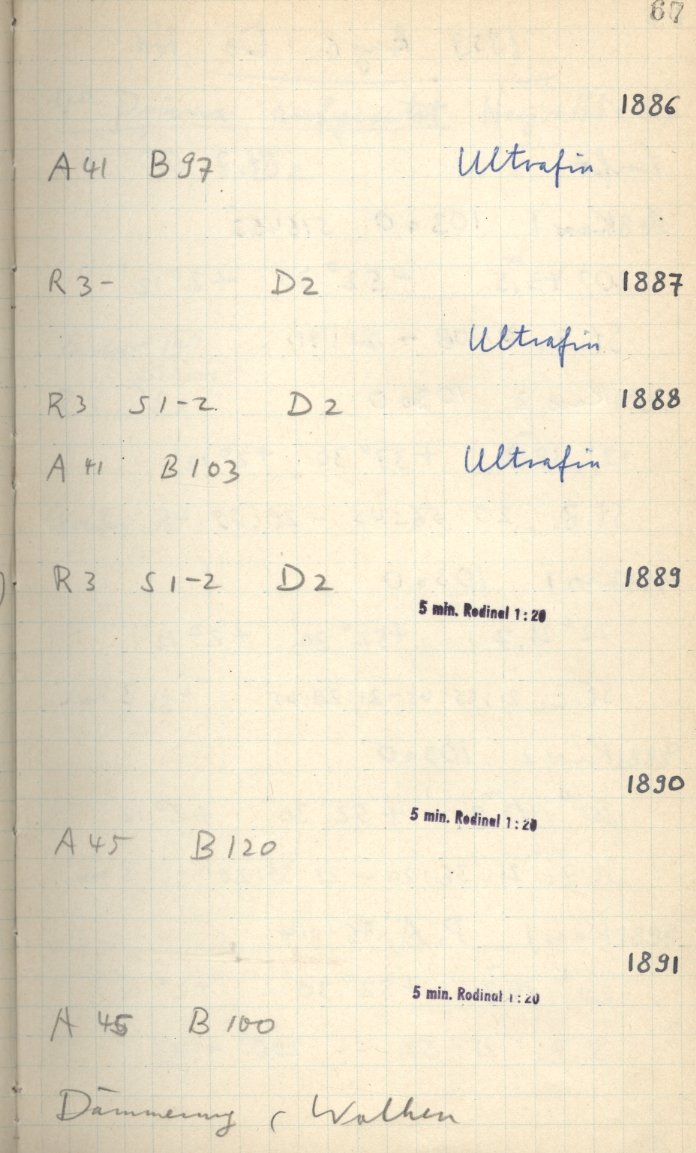 67
1886
A 41 B 97 Ultrafin
R 3- D 2 1887
Ultrafin
R 3 S 1-2 D 2 1888
A 41 B 103 Ultrafin
R 3 S 1-2 D 2 1889
5 min. Rodinal 1:20
1890
5 min. Rodinal 1:20
A 45 B 120
1891
5 min. Rodinal 1:20
A 45 B 100
Dämmerung, Wolken